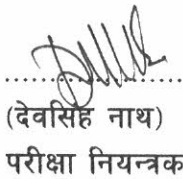 (देवसिंह नाथ)
परीक्षा नियन्त्रक